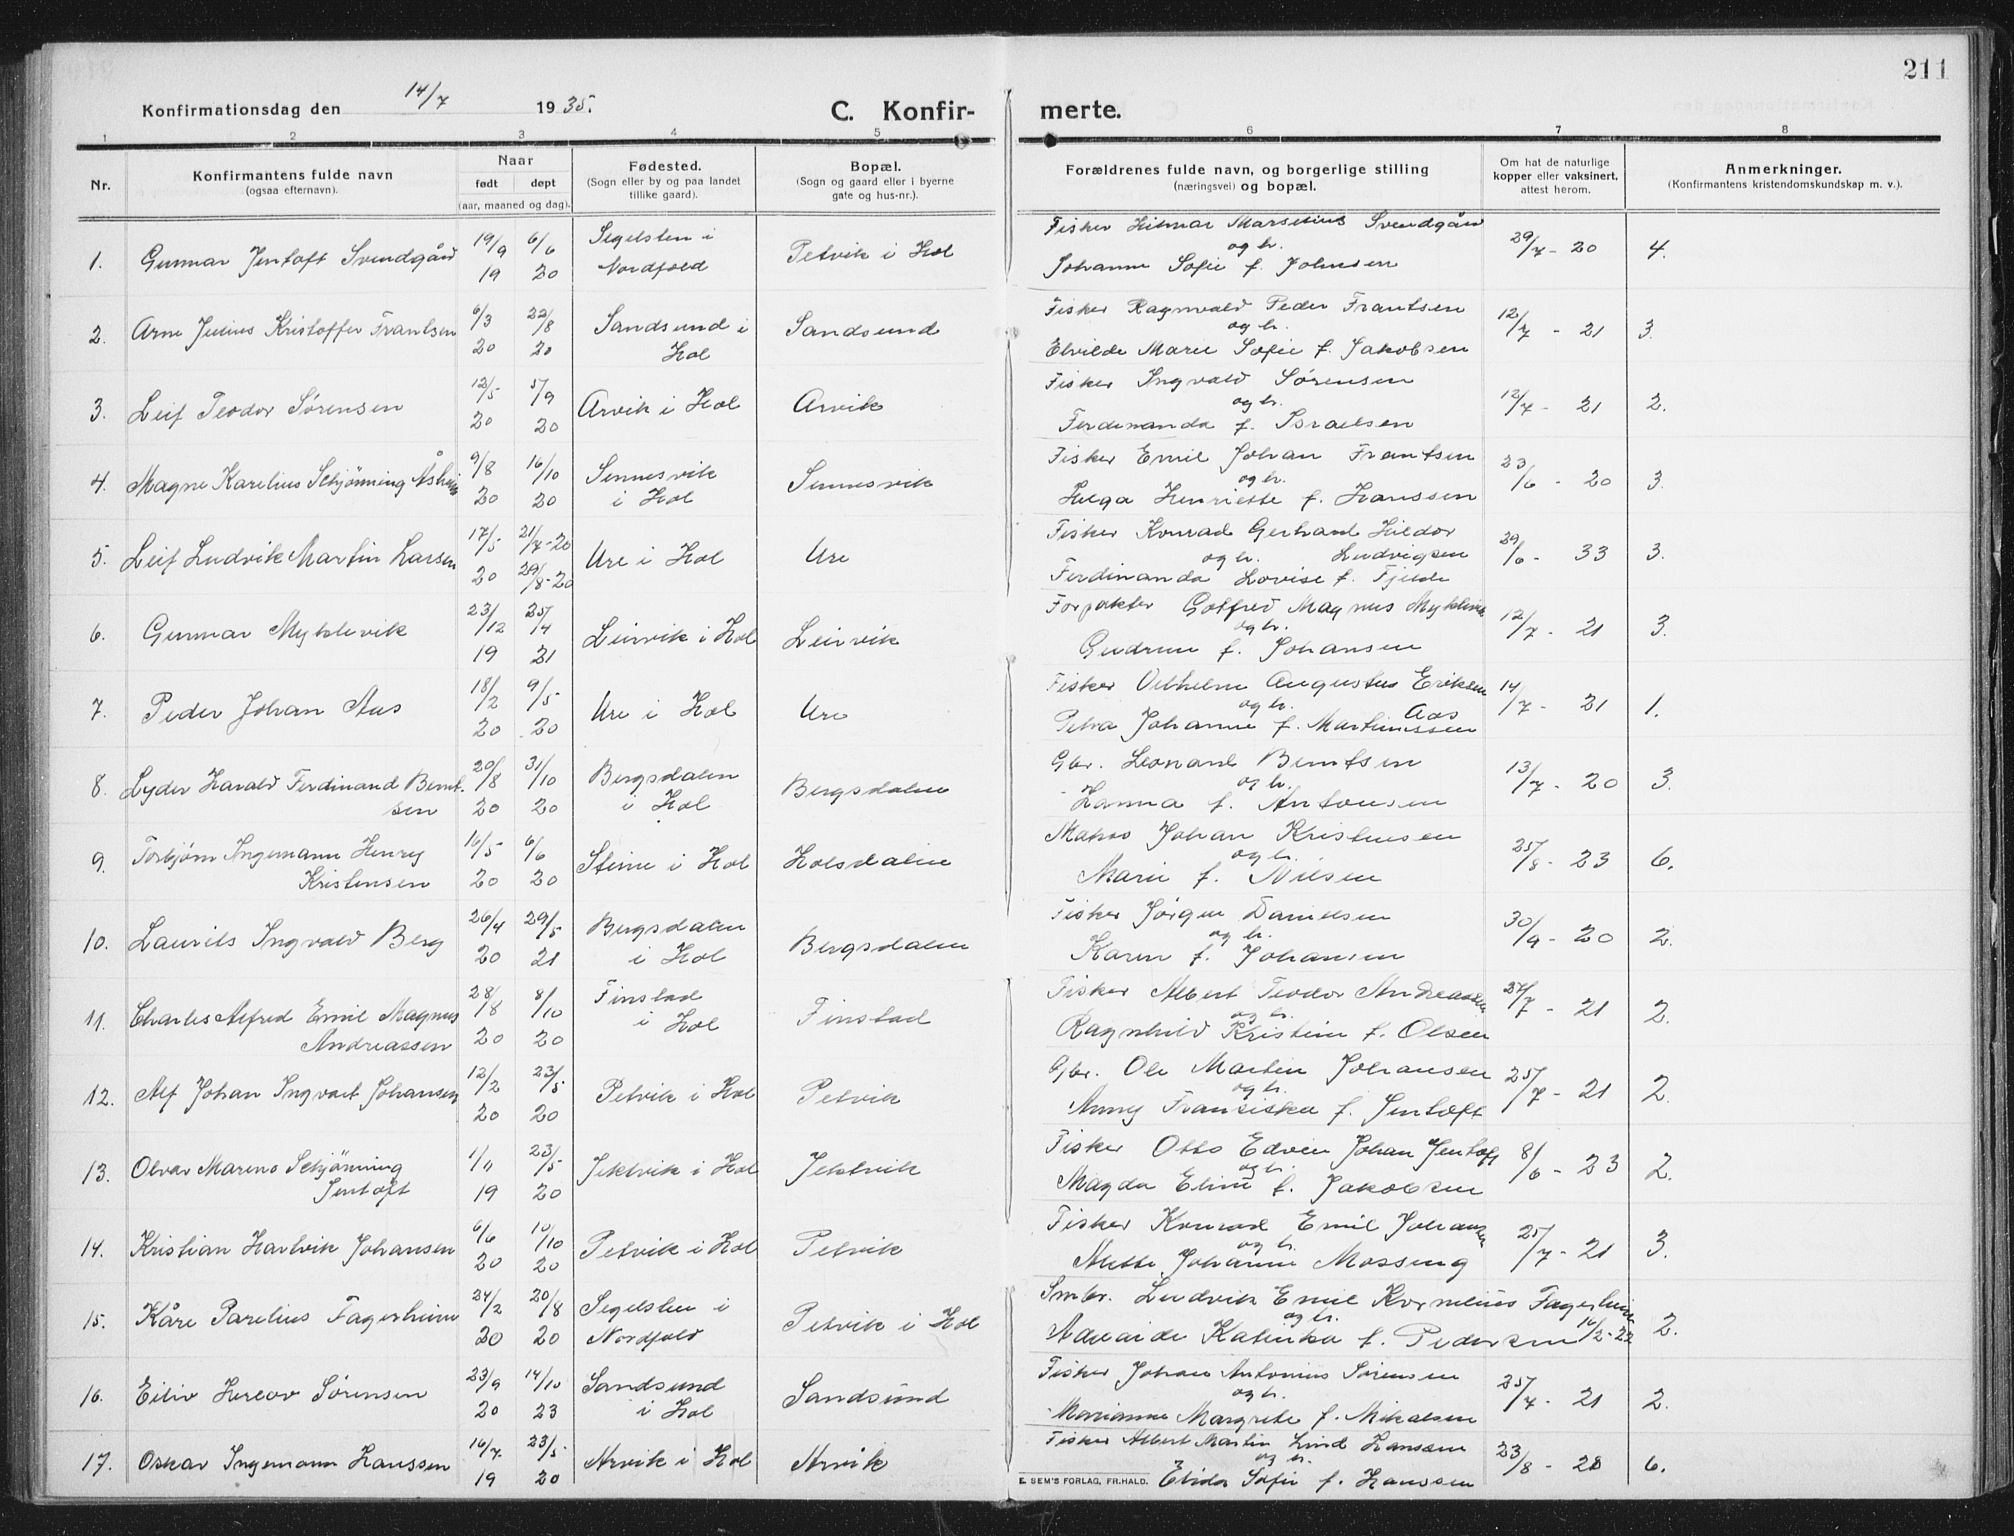 211
Konfirmationsdag den 14/7 1935.
C. Konfirmerte.
1 2 3 4 5 6 7 8
Nr.
Konfirmantens fulde navn
(ogsaa efternavn).
Naar
født døpt
(aar, maaned og dag).
Fødested.
(Sogn eller by og paa landet
tillike gaard).
Bopæl.
(Sogn og gaard eller i byerne
gate og hus-nr.).
Forældrenes fulde navn, og borgerlige stilling
(næringsvei) og bopæl.
Om hat de naturlige
kopper eller vaksinert,
attest herom.
Anmerkninger.
(Konfirmantens kristendomskundskap m. v.).
1. Gunnar Jentoft Svendgård 19/9 19 6/6 20 Segelsten i Nordfold Petvik i Hol
Fisker Hilmar Marselius Svendgård
og h.
Johanne Sofie f. Johnsen
29/7 - 20 4.
2. Arne Julius Kristoffer Frantsen 6/3 20 22/8 20 Sandsund i Hol Sandsund
Fisker Ragnvald Peder Frantsen
og h.
Elvilde Marie Sofie f. Jakobsen
12/7 - 21 3.
3. Leif Teodor Sørensen 12/5 20 5/9 20 Arvik i Hol Arvik
Fisker Ingvald Sørensen
og h.
Ferdinanda f. Israelsen
12/7 - 21 2.
4. Magne Karelius Schjønning Åsheim 9/8 20 16/10 20 Sennesvik i Hol Sennesvik
Fisker Emil Johan Frantsen
og h.
Helga Henriette f. Hanssen
23/6 - 20 3.
5. Leif Ludvik Martin Larsen 17/5 20 21/7-20 29/8-20 Ure i Hol Ure
Fisker Konrad Gerhard Hildor
og h. Ludvigsen
Ferdinanda Lovise f. Fjelde
29/6 - 33 3.
6. Gunnar Myklevik 23/12 19 25/4 21 Leirvik i Hol Leirvik
Forpakter Gotfred Magnus Myklevik
og h.
Gudrun f. Johansen
12/7 - 21 3.
7. Peder Johan Aas 18/2 20 9/5 20 Ure i Hol Ure
Fisker Vilhelm Augustus Eriksen
og h. Aas
Petra Johanne f. Martinussen
14/7 - 21 1.
8. Lyder Harald Ferdinand Berntsen 20/8 20 31/10 20 Bergsdalen i Hol Bergsdalen
Gbr. Leonard Berntsen
og h.
Hanna f. Antonsen
13/7 - 20 3.
9. Torbjørn Ingemann Henry
Kristensen 16/5 20 6/6 20 Steine i Hol Holsdalen
Matros Johan Kristensen
og h.
Marie f. Nilsen
25/8 - 23 6.
10. Laurits Ingvald Berg 26/4 20 29/5 21 Bergsdalen i Hol Bergsdalen
Fisker Jørgen Danielsen
og h.
Karen f. Johansen
30/9 - 20 2.
11. Charles Alfred Emil Magnus
Andreassen 28/8 20 8/10 20 Finstad i Hol Finstad
Fisker Albert Teodor Andreassen
og h.
Ragnhild Kristine f. Olsen
27/7 - 21 2.
12. Alf Johan Ingvart Johansen 12/2 20 23/5 20 Petvik i Hol Petvik
Gbr. Ole Martin Johansen
og h.
Anny Fransiska f. Jentoft
25/7 - 21 2.
13. Olvar Mareno Schjønning
Jentoft 1/11 19 23/5 20 Jektvik i Hol Jektvik
Fisker Otto Edvin Johan Jentoft
og h.
Magda Eline f. Jakobsen
8/6 - 23 2.
14. Kristian Hartvik Johansen 6/6 20 10/10 20 Petvik i Hol Petvik
Fisker Konrad Emil Johansen
og h.
Mette Johanne Mossing
25/7 - 21 3.
15. Kåre Parelius Fagerheim 24/2 20 20/8 20 Segelsten i Nordfold Petvik i Hol
Smbr. Ludvik Emil Kornelius Fagerheim
og h.
Adelaide Katinka f. Pedersen 16/2-22 2.
16. Eiliv Herlov Sørensen 23/9 20 14/10 23 Sandsund i Hol Sandsund
Fisker Johan Antonius Sørensen
og h.
Marianne Margrete f. Mikalsen
25/7 - 21 2.
17. Oskar Ingemann Hanssen 16/7 19 23/5 20 Arvik i Hol Arvik
Fisker Albert Martin Lind Hanssen
og h.
Elida Sofie f. Hanssen
23/8 - 28 6.
E. SEM'S FORLAG, FR.HALD.